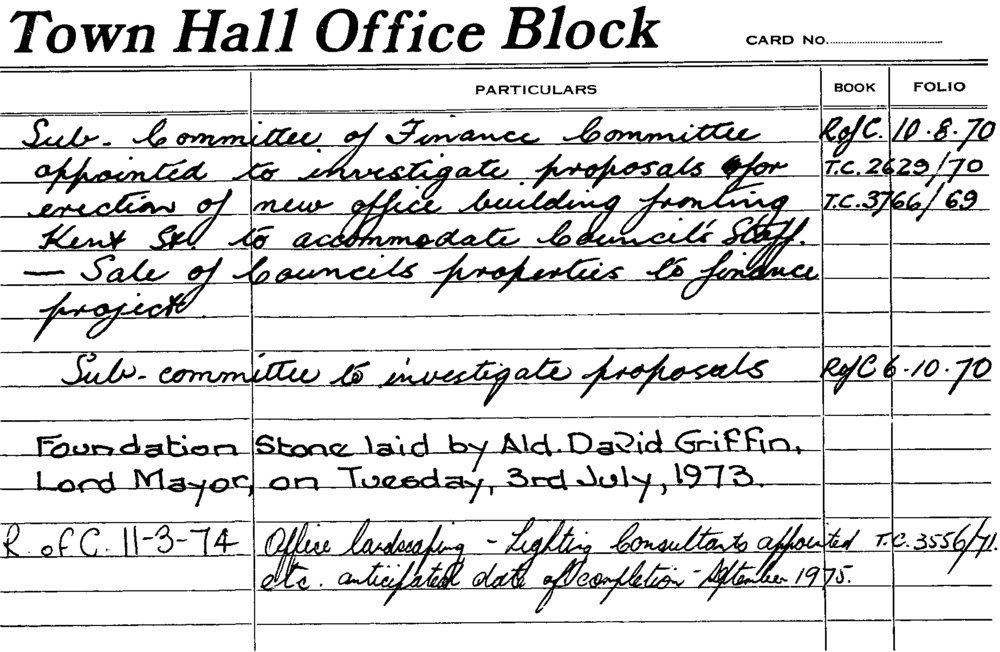 Town Hall Office Block CARD No.
PARTICULARS BOOK FOLIO
Sub-Committee of Finance Committee R of C. 10.8.70
appointed to investigate proposals for T.C. 2629/70
erection of new office building fronting T.C. 3766/69
Kent St. to accommodate Council's Staff.
— Sale of Councils properties to finance
project.
Sub-committee to investigate proposals R of C 6.10.70
Foundation Stone laid by Ald. David Griffin,
Lord Mayor, on Tuesday, 3rd July, 1973.
R. of C. 11-3-74 Office landscaping - Lighting Consultants appointed T.C. 3556/71.
etc. anticipated date of completion - September 1975.